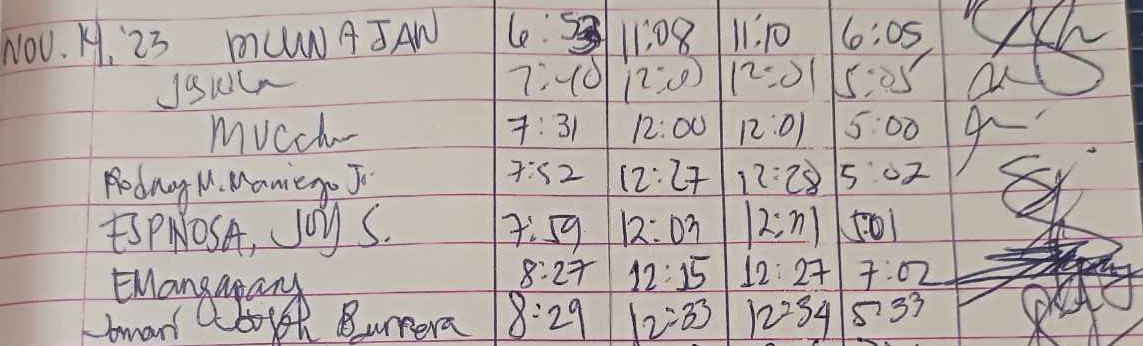 NOV. 14, '23 6:53 11:08 11:10 6:05
7:40 12:00 12:01 5:05
7:31 12:00 12:01 5:00
Rodney M. Maniego Jr. 7:52 12:27 12:28 5:02
ESPINOSA, JOY S. 7:59 12:03 5:01
EMangapang 8:27 12:15 12:27 7:02
Jomari Joseph Burrera 8:29 12:33 12:34 5:33